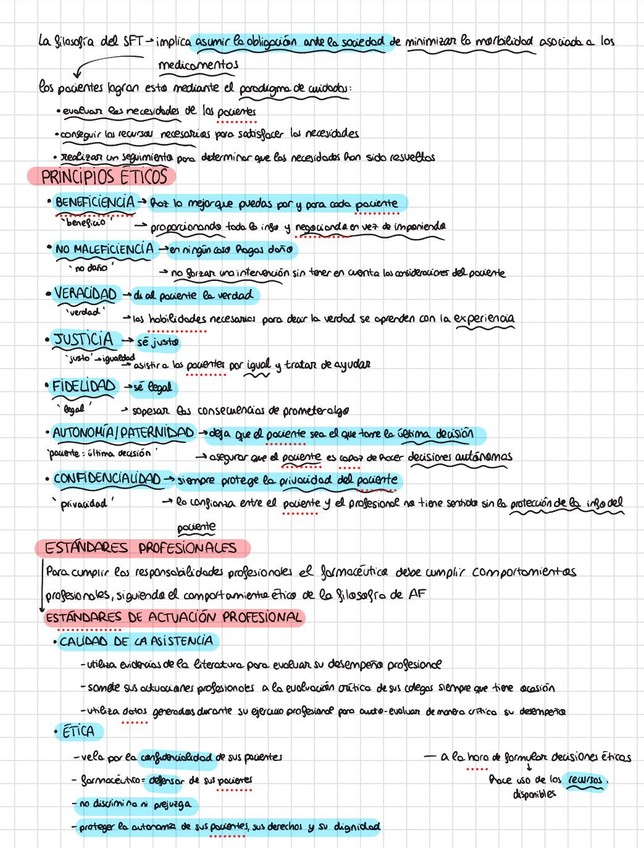 La filosofía del SFT → implica asumir la obligación ante la sociedad de minimizar la morbilidad asociada a los
medicamentos
los pacientes logran esto mediante el paradigma de cuidados:
• evaluar las necesidades de los pacientes
• conseguir los recursos necesarios para satisfacer las necesidades
• realizar un seguimiento para determinar que las necesidades han sido resueltas
PRINCIPIOS ÉTICOS
• BENEFICIENCIA → haz lo mejor que puedas por y para cada paciente
'beneficio' → proporcionando toda la info y negociando en vez de imponiendo
• NO MALEFICIENCIA → en ningún caso hagas daño
'no daño' → no forzar una intervención sin tener en cuenta las consideraciones del paciente
• VERACIDAD → di al paciente la verdad
'verdad' → las habilidades necesarias para decir la verdad se aprenden con la experiencia
• JUSTICIA → sé justo
'justo' → igualdad → asistir a los pacientes por igual y tratar de ayudar
• FIDELIDAD → sé legal
'legal' → sopesar las consecuencias de prometer algo
• AUTONOMÍA/PATERNIDAD → deja que el paciente sea el que tome la última decisión
'paciente: última decisión' → asegurar que el paciente es capaz de hacer decisiones autónomas
• CONFIDENCIALIDAD → siempre protege la privacidad del paciente
'privacidad' → la confianza entre el paciente y el profesional no tiene sentido sin la protección de la info del
paciente
ESTÁNDARES PROFESIONALES
Para cumplir las responsabilidades profesionales el farmacéutico debe cumplir comportamientos
profesionales, siguiendo el comportamiento ético de la filosofía de AF
ESTÁNDARES DE ACTUACIÓN PROFESIONAL
• CALIDAD DE LA ASISTENCIA
- utiliza evidencias de la literatura para evaluar su desempeño profesional
- somete sus actuaciones profesionales a la evaluación crítica de sus colegas siempre que tiene ocasión
- utiliza datos generados durante su ejercicio profesional para auto-evaluar de manera crítica su desempeño
• ÉTICA
- vela por la confidencialidad de sus pacientes
- farmacéutico = defensor de sus pacientes
- no discrimina ni prejuzga
- proteger la autonomía de sus pacientes, sus derechos y su dignidad
— a la hora de formular decisiones éticas
↓
hace uso de los recursos
disponibles